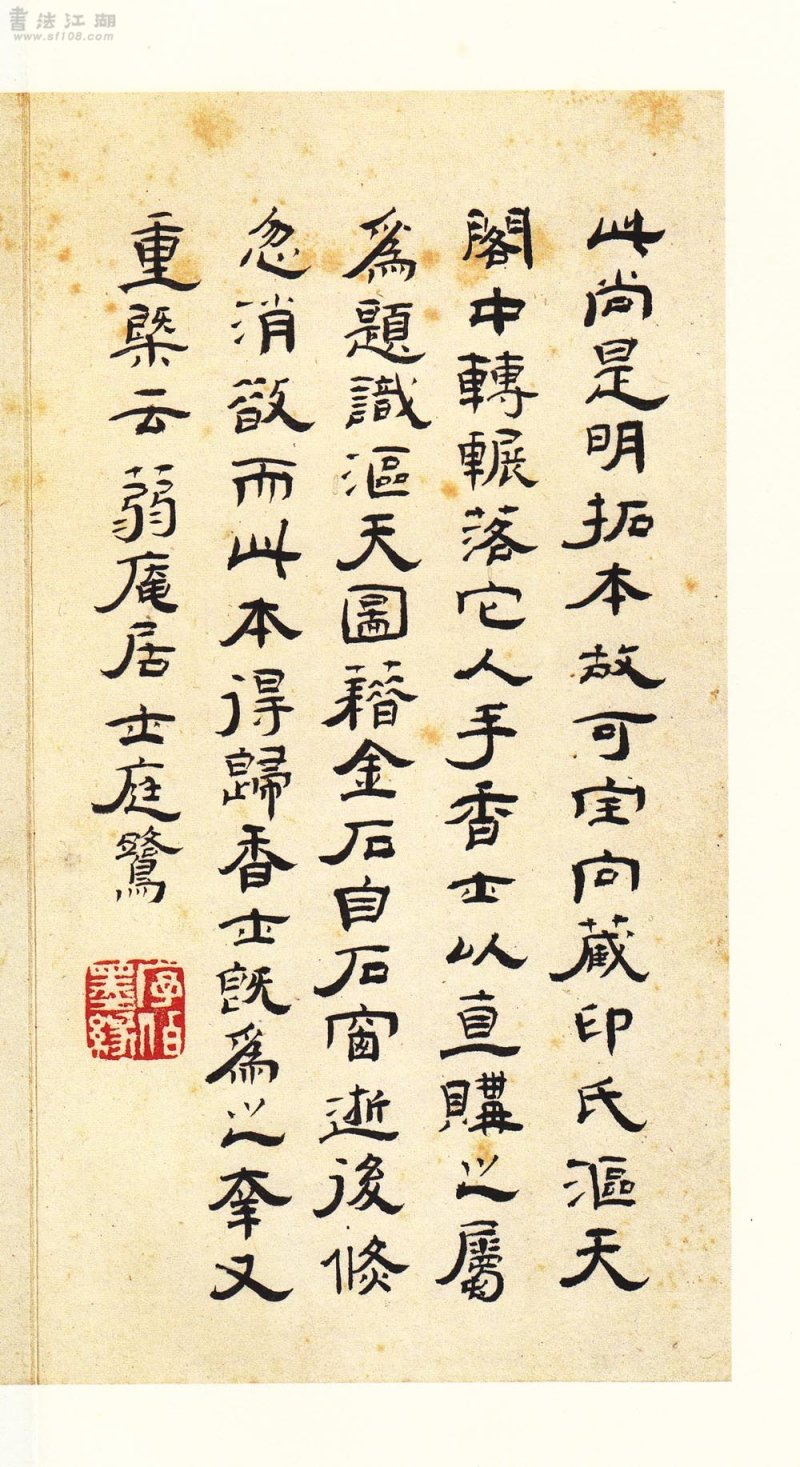 書法江湖
www.sf108.com
此尚是明拓本故可宝向藏印氏漚天
閣中轉輾落它人手香士以直購之屬
爲題識漚天圖籍金石自石窗逝後倐
忽消散而此本得歸香士旣爲之幸又
重槩云蒻庵居士庭鷺
字伯墨緣